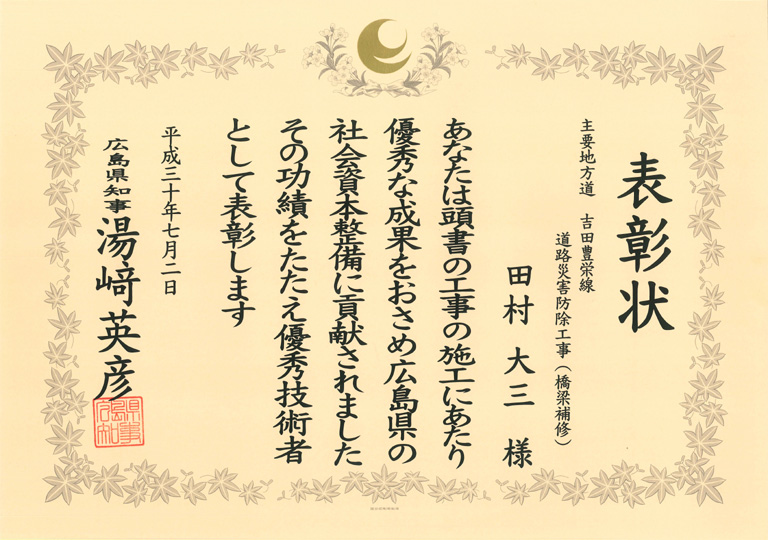 表彰状
主要地方道　吉田豊栄線
道路災害防除工事（橋梁補修）
田村　大三　様
あなたは頭書の工事の施工にあたり
優秀な成果をおさめ広島県の
社会資本整備に貢献されました
その功績をたたえ優秀技術者
として表彰します
平成三十年七月二日
広島県知事　湯﨑英彦